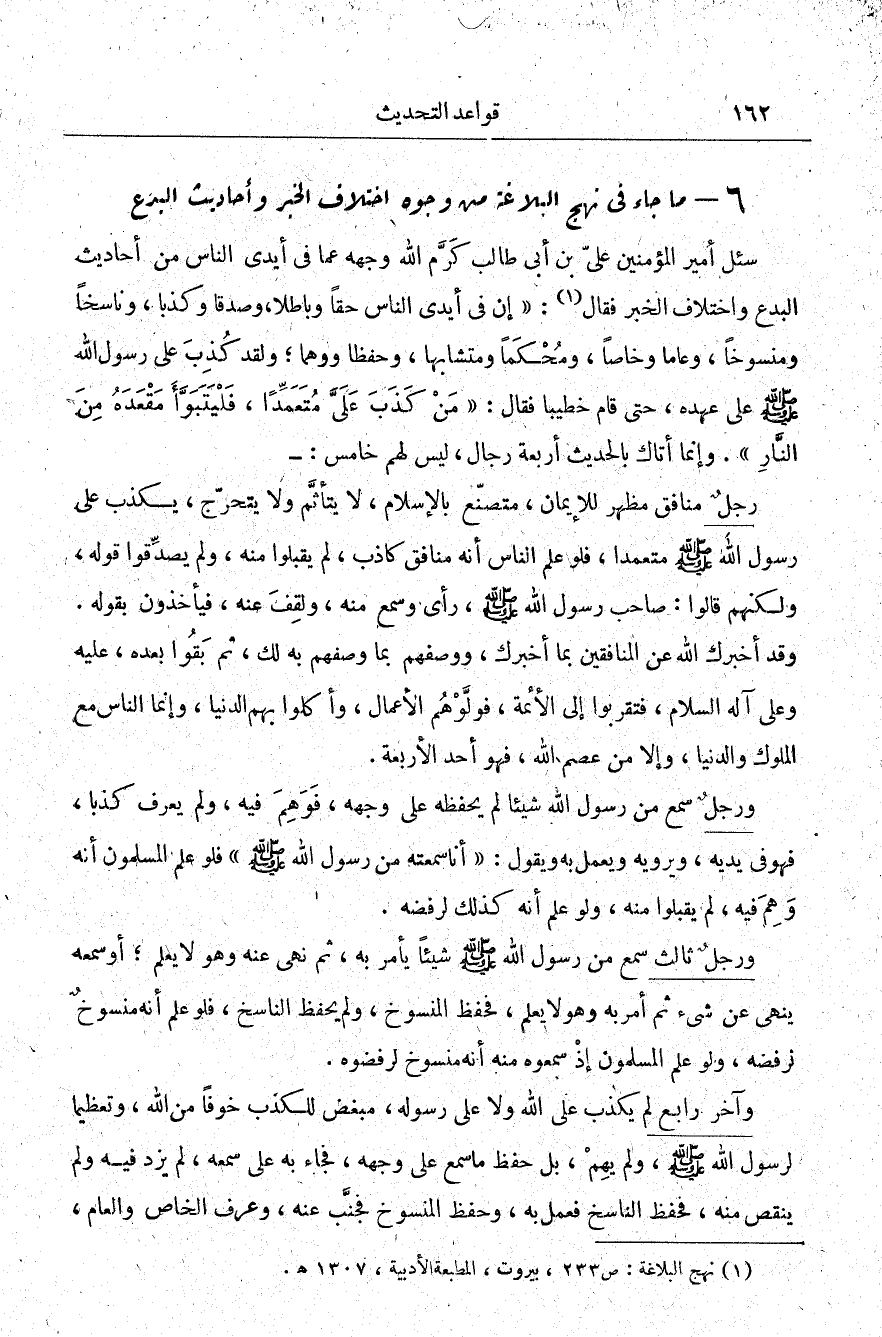 ١٦٢ قواعد التحديث
٦ — ما جاء فى نهج البلاغة من وجوه اختلاف الخبر وأحاديث البدع
سئل أمير المؤمنين علىّ بن أبى طالب كَرَّم الله وجهه عما فى أيدى الناس من أحاديث
البدع واختلاف الخبر فقال(١) : « إن فى أيدى الناس حقاً وباطلا، وصدقا وكذبا ، وناسخاً
ومنسوخاً ، وعاما وخاصاً ، ومُحْكَمَاً ومتشابها ، وحفظا ووهما ؛ ولقد كُذِبَ على رسول الله
ﷺ على عهده ، حتى قام خطيبا فقال : « مَنْ كَذَبَ عَلَىَّ مُتَعَمِّدًا ، فَلْيَتَبَوَّأْ مَقْعَدَهُ مِنَ
النَّارِ » . وإنما أتاك بالحديث أربعة رجال ، ليس لهم خامس : ــ
رجلٌ منافق مظهر للإيمان ، متصنّع بالإسلام ، لا يتأثَّم ولا يتحرّج ، يكذب على
رسول الله ﷺ متعمدا ، فلو علم الناس أنه منافق كاذب ، لم يقبلوا منه ، ولم يصدِّقوا قوله ،
ولكنهم قالوا : صاحب رسول الله ﷺ ، رأى وسمع منه ، ولقِفَ عنه ، فيأخذون بقوله .
وقد أخبرك الله عن المنافقين بما أخبرك ، ووصفهم بما وصفهم به لك ، ثم بَقُوا بعده ، عليه
وعلى آله السلام ، فتقربوا إلى الأئمة ، فولَّوْهُم الأعمال ، وأكلوا بهم الدنيا ، وإنما الناس مع
الملوك والدنيا ، وإلا من عصم الله ، فهو أحد الأربعة .
ورجلٌ سمع من رسول الله شيئا لم يحفظه على وجهه ، فَوَهِمَ فيه ، ولم يعرف كذبا ،
فهو فى يديه ، ويرويه ويعمل به ويقول : « أنا سمعته من رسول الله ﷺ » فلو علم المسلمون أنه
وَهِمَ فيه ، لم يقبلوا منه ، ولو علم أنه كذلك لرفضه .
ورجلٌ ثالث سمع من رسول الله ﷺ شيئاً يأمر به ، ثم نهى عنه وهو لا يعلم ؛ أو سمعه
ينهى عن شىء ثم أمر به وهو لا يعلم ، فحفظ المنسوخ ، ولم يحفظ الناسخ ، فلو علم أنه منسوخٌ
لرفضه ، ولو علم المسلمون إذْ سمعوه منه أنه منسوخ لرفضوه .
وآخر رابع لم يكذب على الله ولا على رسوله ، مبغض للكذب خوفاً من الله ، وتعظيما
لرسول الله ﷺ ، ولم يهِمْ ، بل حفظ ما سمع على وجهه ، فجاء به على سمعه ، لم يزد فيه ولم
ينقص منه ، فحفظ الناسخ فعمل به ، وحفظ المنسوخ فجنَّب عنه ، وعرف الخاص والعام ،
(١) نهج البلاغة : ص٢٣٣ ، بيروت ، المطبعة الأدبية ، ١٣٠٧ ه .